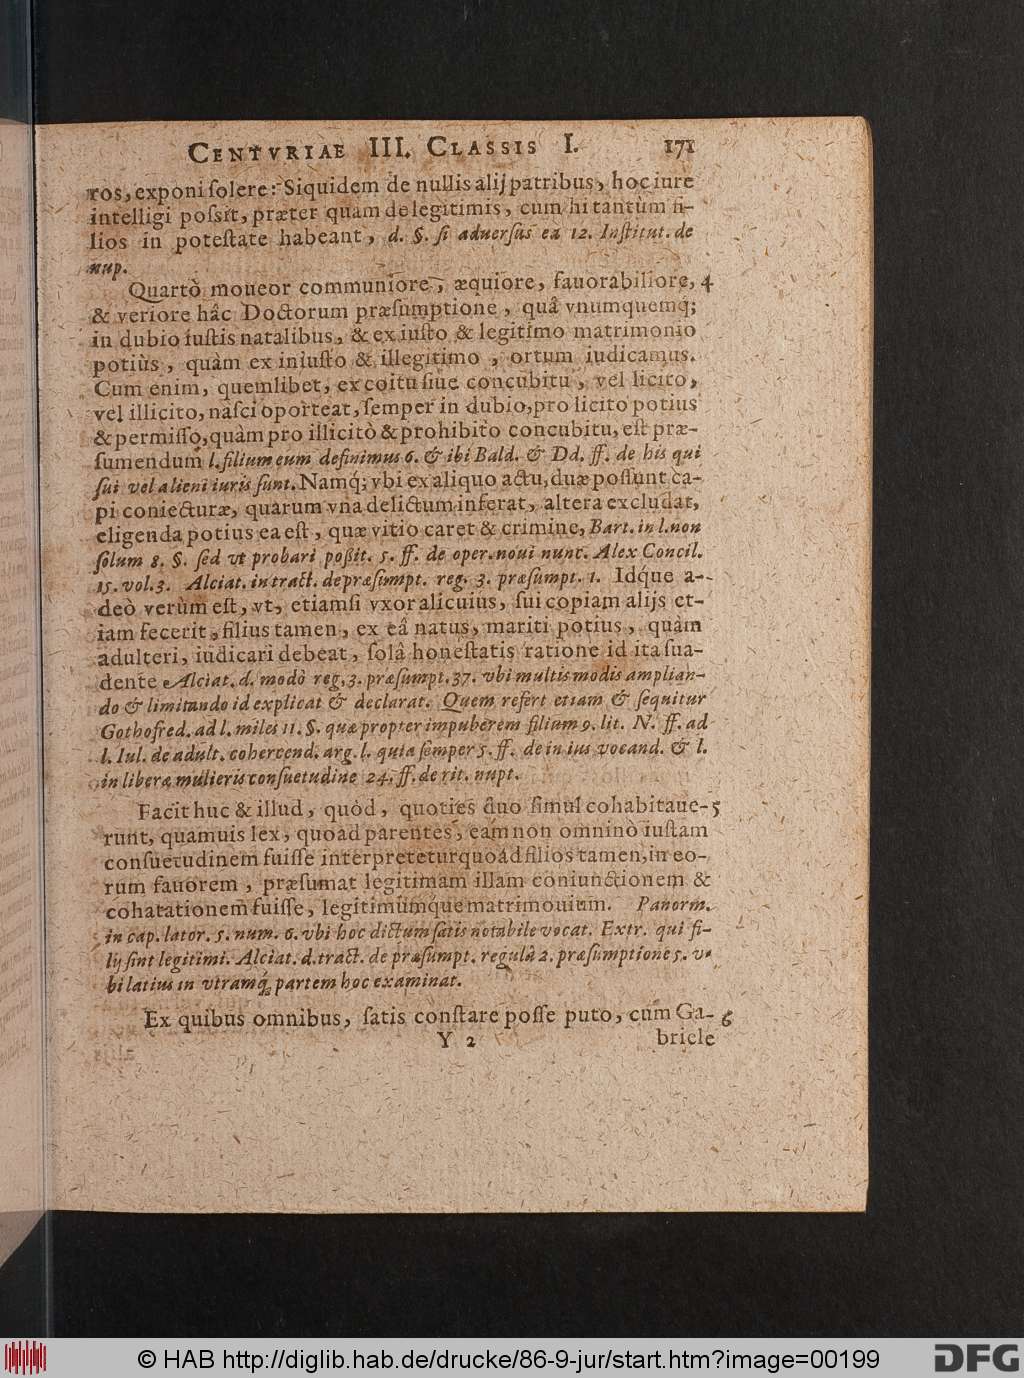 CENTVRIAE III. CLASSIS I. 171
ros, exponi solere: Siquidem de nullis alij patribus, hoc iure
intelligi possit, præter quàm de legitimis, cum hi tantùm fi-
lios in potestate habeant, d. §. si aduersus ea 12. Institut. de
nup.
Quartò moueor communiore, æquiore, fauorabiliore, 4
& veriore hâc Doctorum præsumptione, quâ vnumquemq;
in dubio iustis natalibus, & ex iusto & legitimo matrimonio
potiùs, quàm ex iniusto & illegitimo, ortum iudicamus.
Cum enim, quemlibet, ex coitu siue concubitu, vel licito,
vel illicito, nasci oporteat, semper in dubio, pro licito potius
& permisso, quàm pro illicitò & prohibito concubitu, est præ-
sumendum l. filium eum definimus 6. & ibi Bald. & Dd. ff. de his qui
sui vel alieni iuris sunt. Namq; vbi ex aliquo actu, duæ possunt ca-
pi coniecturæ, quarum vna delictum inferat, altera excludat,
eligenda potius ea est, quæ vitio caret & crimine, Bart. in l. non
solum 8. §. sed vt probari poßit. 5. ff. de oper. noui nunc. Alex Concil.
15. vol. 3. Alciat. in tract. de præsumpt. reg. 3. præsumpt. 1. Idq́ue a-
deò verùm est, vt, etiamsi vxor alicuius, sui copiam alijs et-
iam fecerit, filius tamen, ex eâ natus, mariti potius, quàm
adulteri, iudicari debeat, solâ honestatis ratione id ita sua-
dente Alciat. d. modò reg. 3. præsumpt. 37. vbi multis modis amplian-
do & limitando id explicat & declarat. Quem refert etiam & sequitur
Gothofred. ad l. miles 11. §. quæ propter impuberem filium 9. lit. N. ff. ad
l. Iul. de adult. cohercend. arg. l. quia semper 5. ff. de in ius vocand. & l.
in liberæ mulieris consuetudine 24. ff. de rit. nupt.
Facit huc & illud, quòd, quoties duo simul cohabitaue- 5
runt, quamuis lex, quoad parentes, eam non omninò iustam
consuetudinem fuisse interpretetur quoád filios tamen, in eo-
rum fauorem, præsumat legitimam illam coniunctionem &
cohatationem fuisse, legitimúmque matrimonium. Panorm.
in cap. lator. 5. num. 6. vbi hoc dictum satis notabile vocat. Extr. qui fi-
lij sint legitimi. Alciat. d. tract. de præsumpt. regulâ 2. præsumptione 5. v-
bi latius in vtramq́; partem hoc examinat.
Ex quibus omnibus, satis constare posse puto, cum Ga- 6
Y 2 briele
© HAB http://diglib.hab.de/drucke/86-9-jur/start.htm?image=00199
DFG